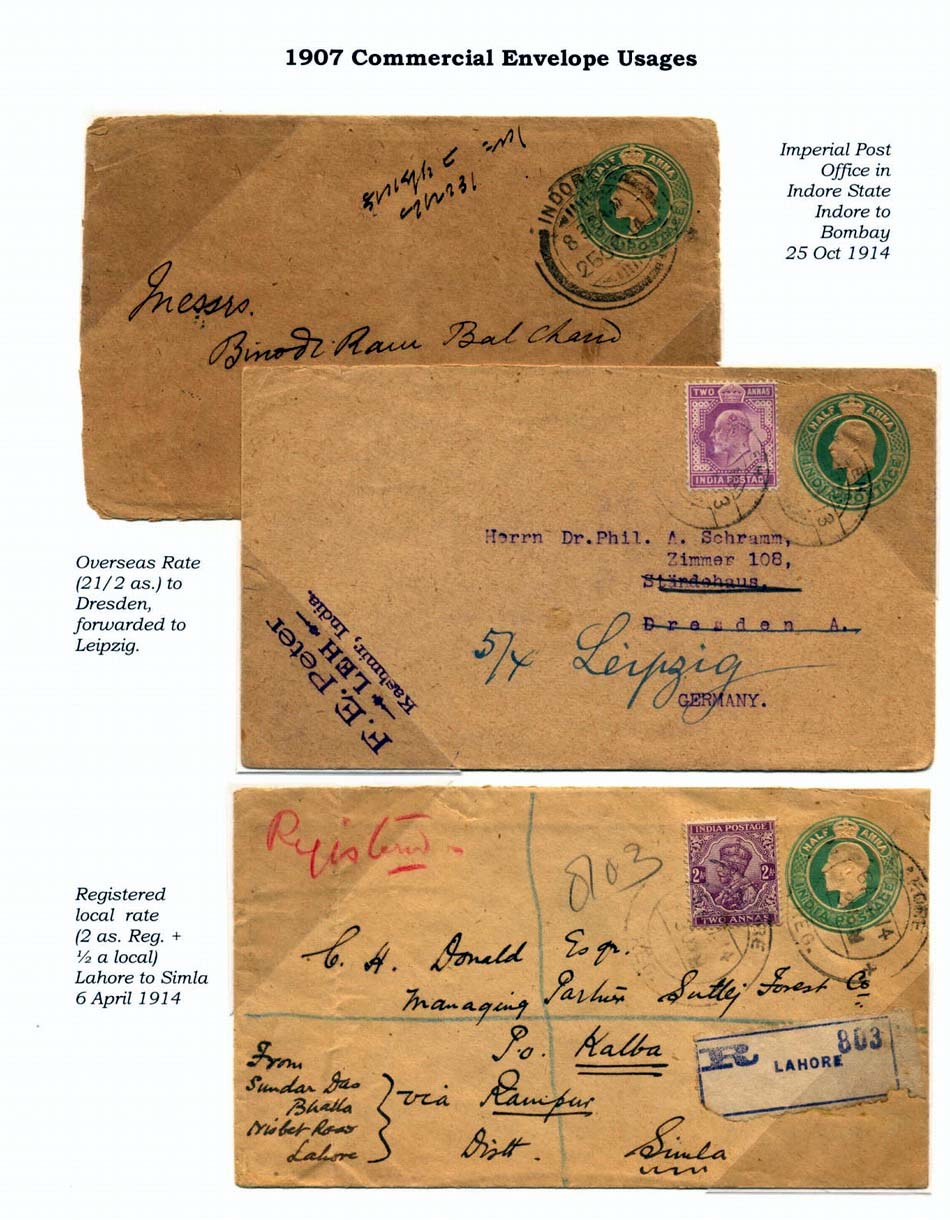 1907 Commercial Envelope Usages
Imperial Post
Office in
Indore State
Indore to
Bombay
25 Oct 1914
INDORE
HALF ANNA
POSTAGE
Messrs.
Binodi Ram Bal Chand
TWO ANNAS
INDIA POSTAGE
HALF ANNA
INDIA POSTAGE
Herrn Dr.Phil. A. Schramm,
Zimmer 108,
Ständehaus.
Dresden A.
5/4 Leipzig
GERMANY.
F. E. Peter
LEH
Kashmir, India.
Overseas Rate
(21/2 as.) to
Dresden,
forwarded to
Leipzig.
Registered
local rate
(2 as. Reg. +
½ a local)
Lahore to Simla
6 April 1914
Registered
8103
INDIA POSTAGE
2As 2As
TWO ANNAS
HALF ANNA
INDIA POSTAGE
C. H. Donald Esqr.
Managing Partner Sutlej Forest Co.
Po. Kalba
via Rampur
Distt. Simla
From
Sundar Das
Bhalla
Nisbet Road
Lahore
R LAHORE 803